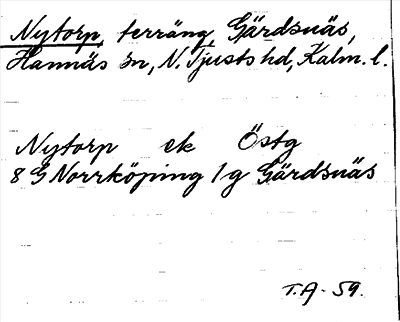 Nytorp, terräng, Gärdsnäs,
Hannäs sn, N. Tjusts hd, Kalm. l.
Nytorp ek Östg
8 G Norrköping 1 g Gärdsnäs
T.A - 59.